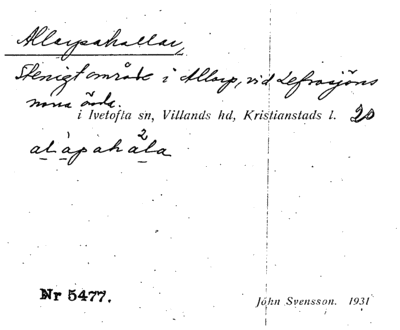 Allarpahallar,
Stenigt område i Allarp, vid Lefrasjöns
norra ände.
i Ivetofta sn, Villands hd, Kristianstads l. 20
Nr 5477.
John Svensson. 1931